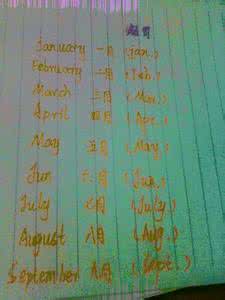 January 一月 (Jan.)
February 二月 (Feb.)
March 三月 (Mar.)
April 四月 (Apr.)
May 五月 (May)
Jun 六月 (Jun.)
July 七月 (July)
August 八月 (Aug.)
September 九月 (Sept.)